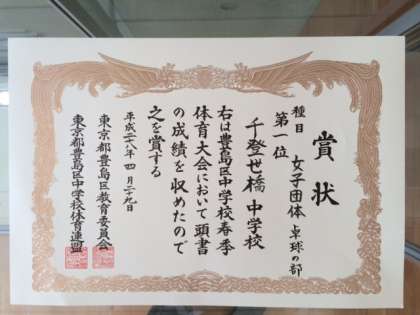 賞状
種目 女子団体 卓球の部
第一位
千登世橋 中学校
右は豊島区中学校春季
体育大会において頭書
の成績を収めたので
之を賞する
平成二八年 四月二九日
東京都豊島区教育委員会
東京都豊島区中学校体育連盟